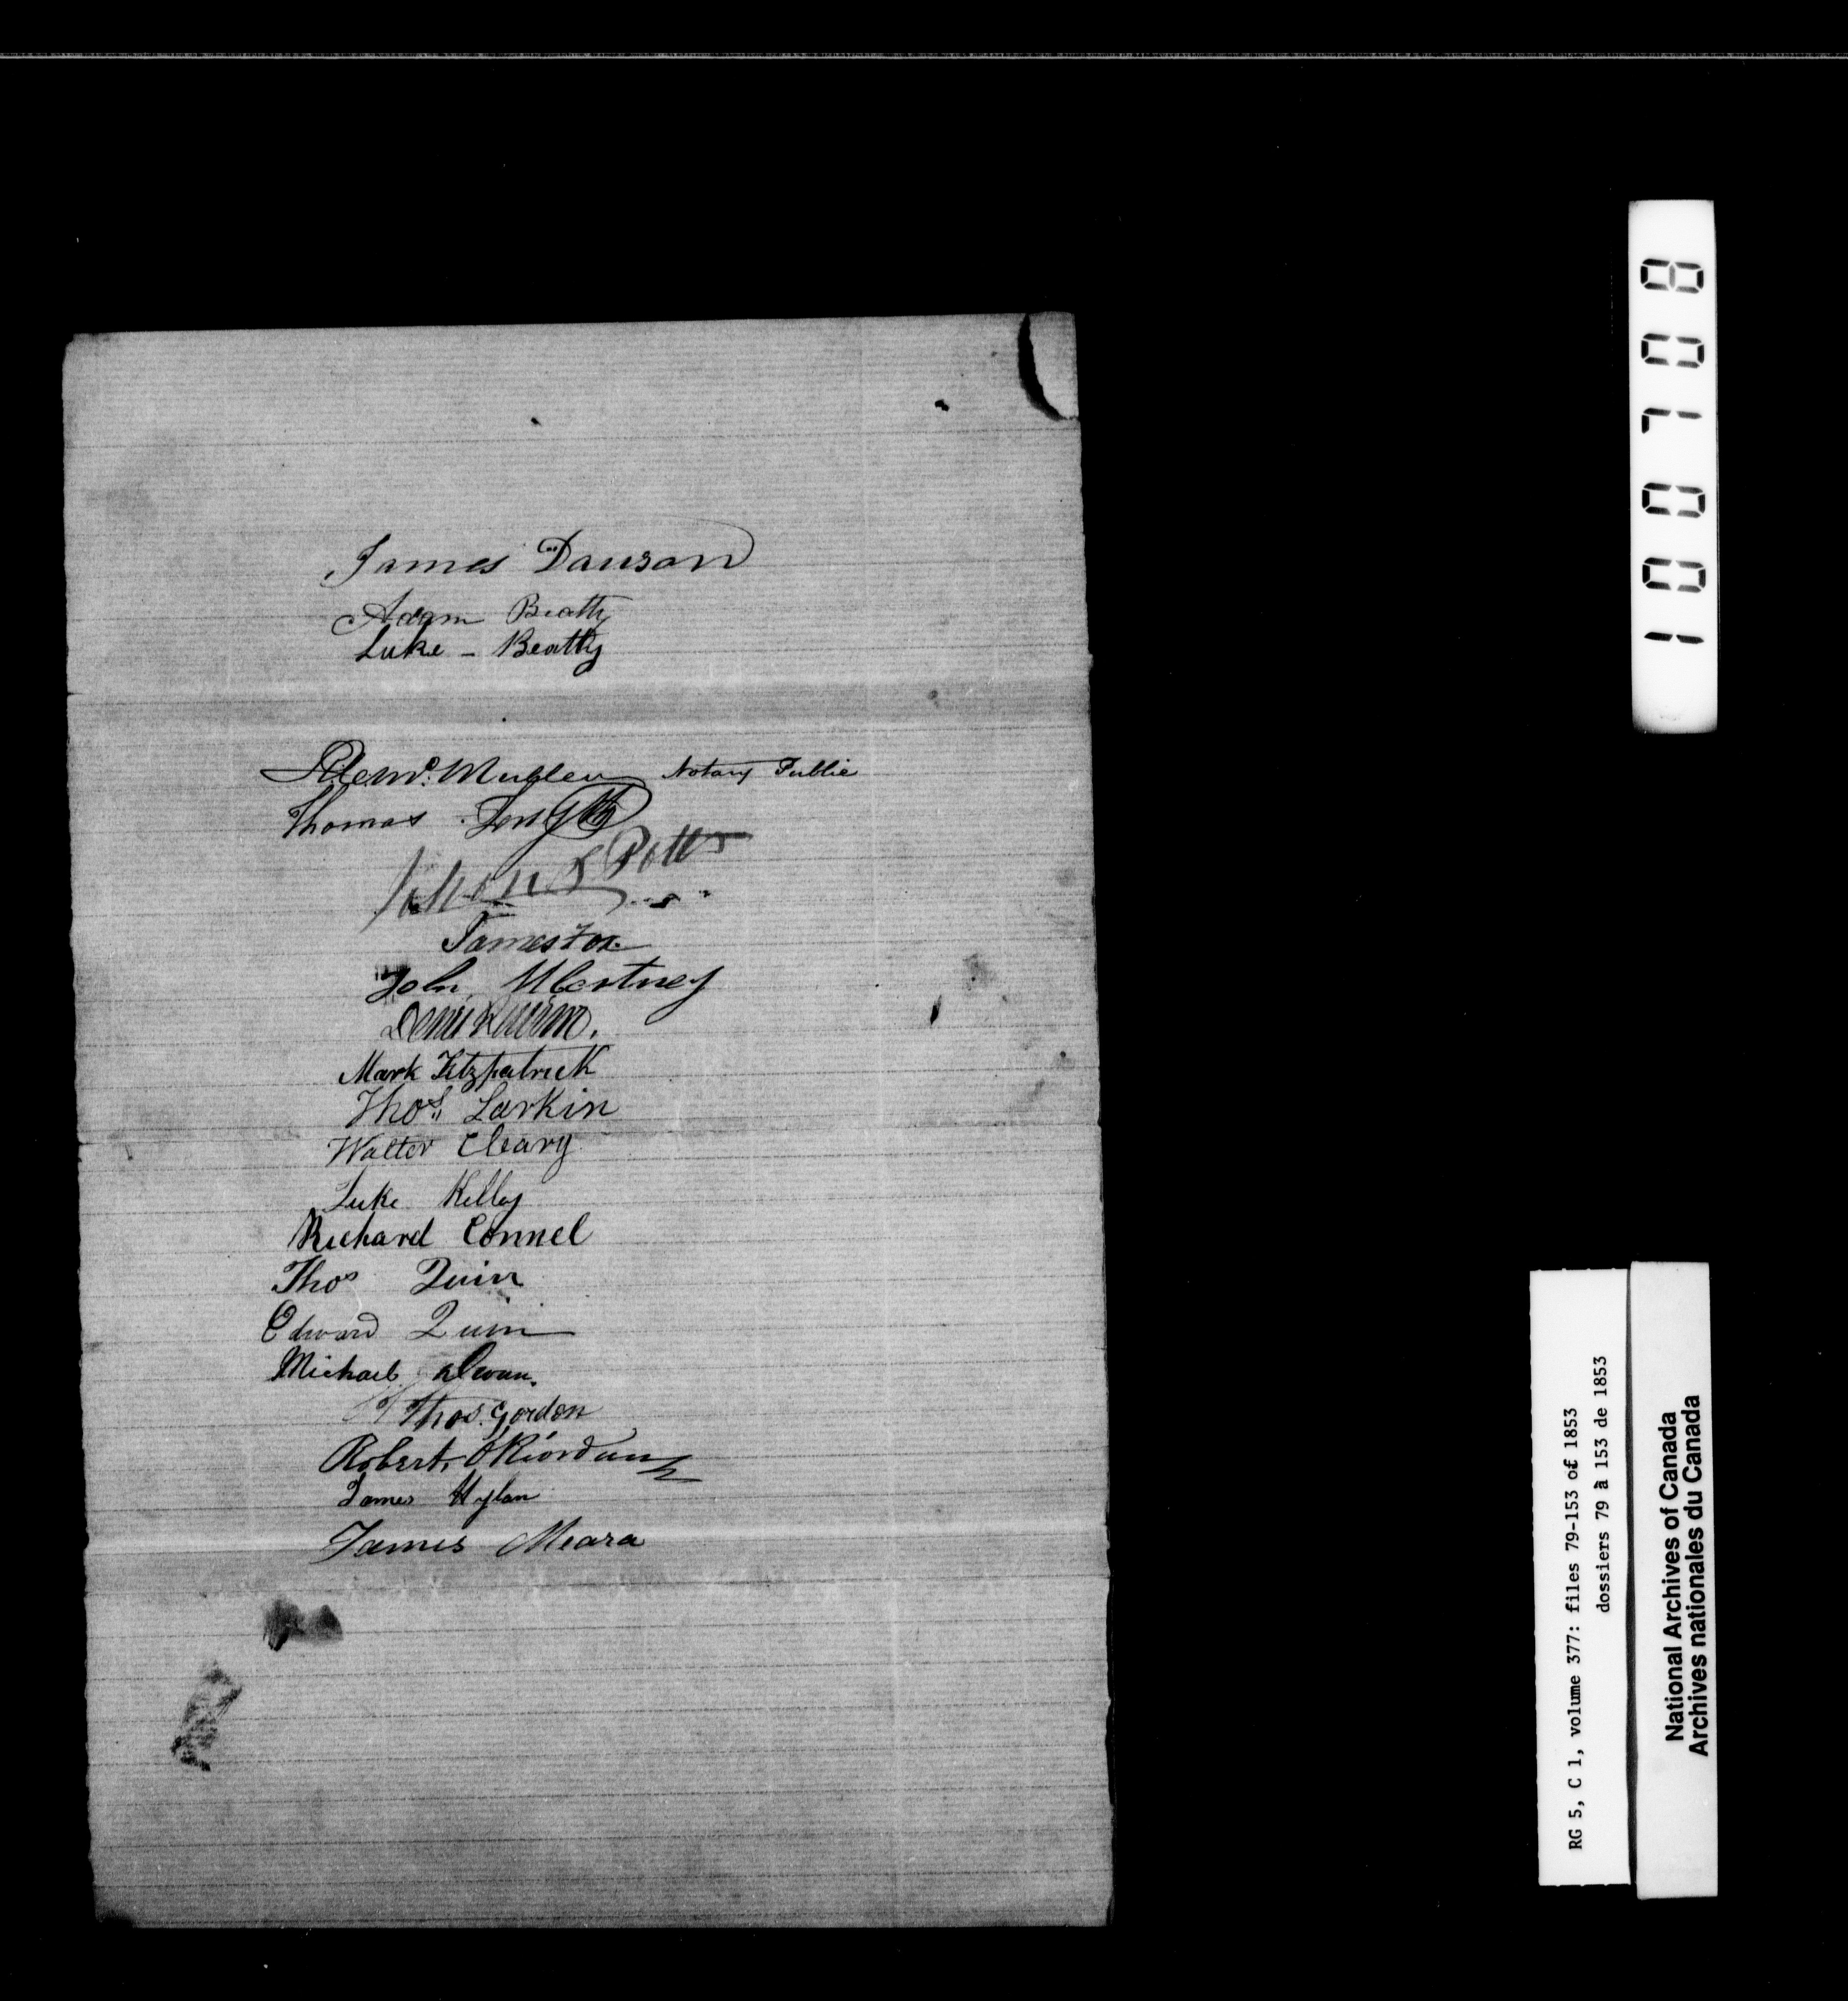 James Dawson
Adam Beatty
Luke - Beatty
Mullen Notary Public
Thomas
Potts
James Fox
John McCartney
Mark Fitzpatrick
Thos. Larkin
Walter Cleary
Luke Kelley
Richard Connel
Thos Quin
Edward Quin
Michael
Thos. Gordon
Robert, O'Riordan
James Hylan
James Meara
1007008
RG 5, C 1, volume 377: files 79-153 of 1853
dossiers 79 à 153 de 1853
National Archives of Canada
Archives nationales du Canada